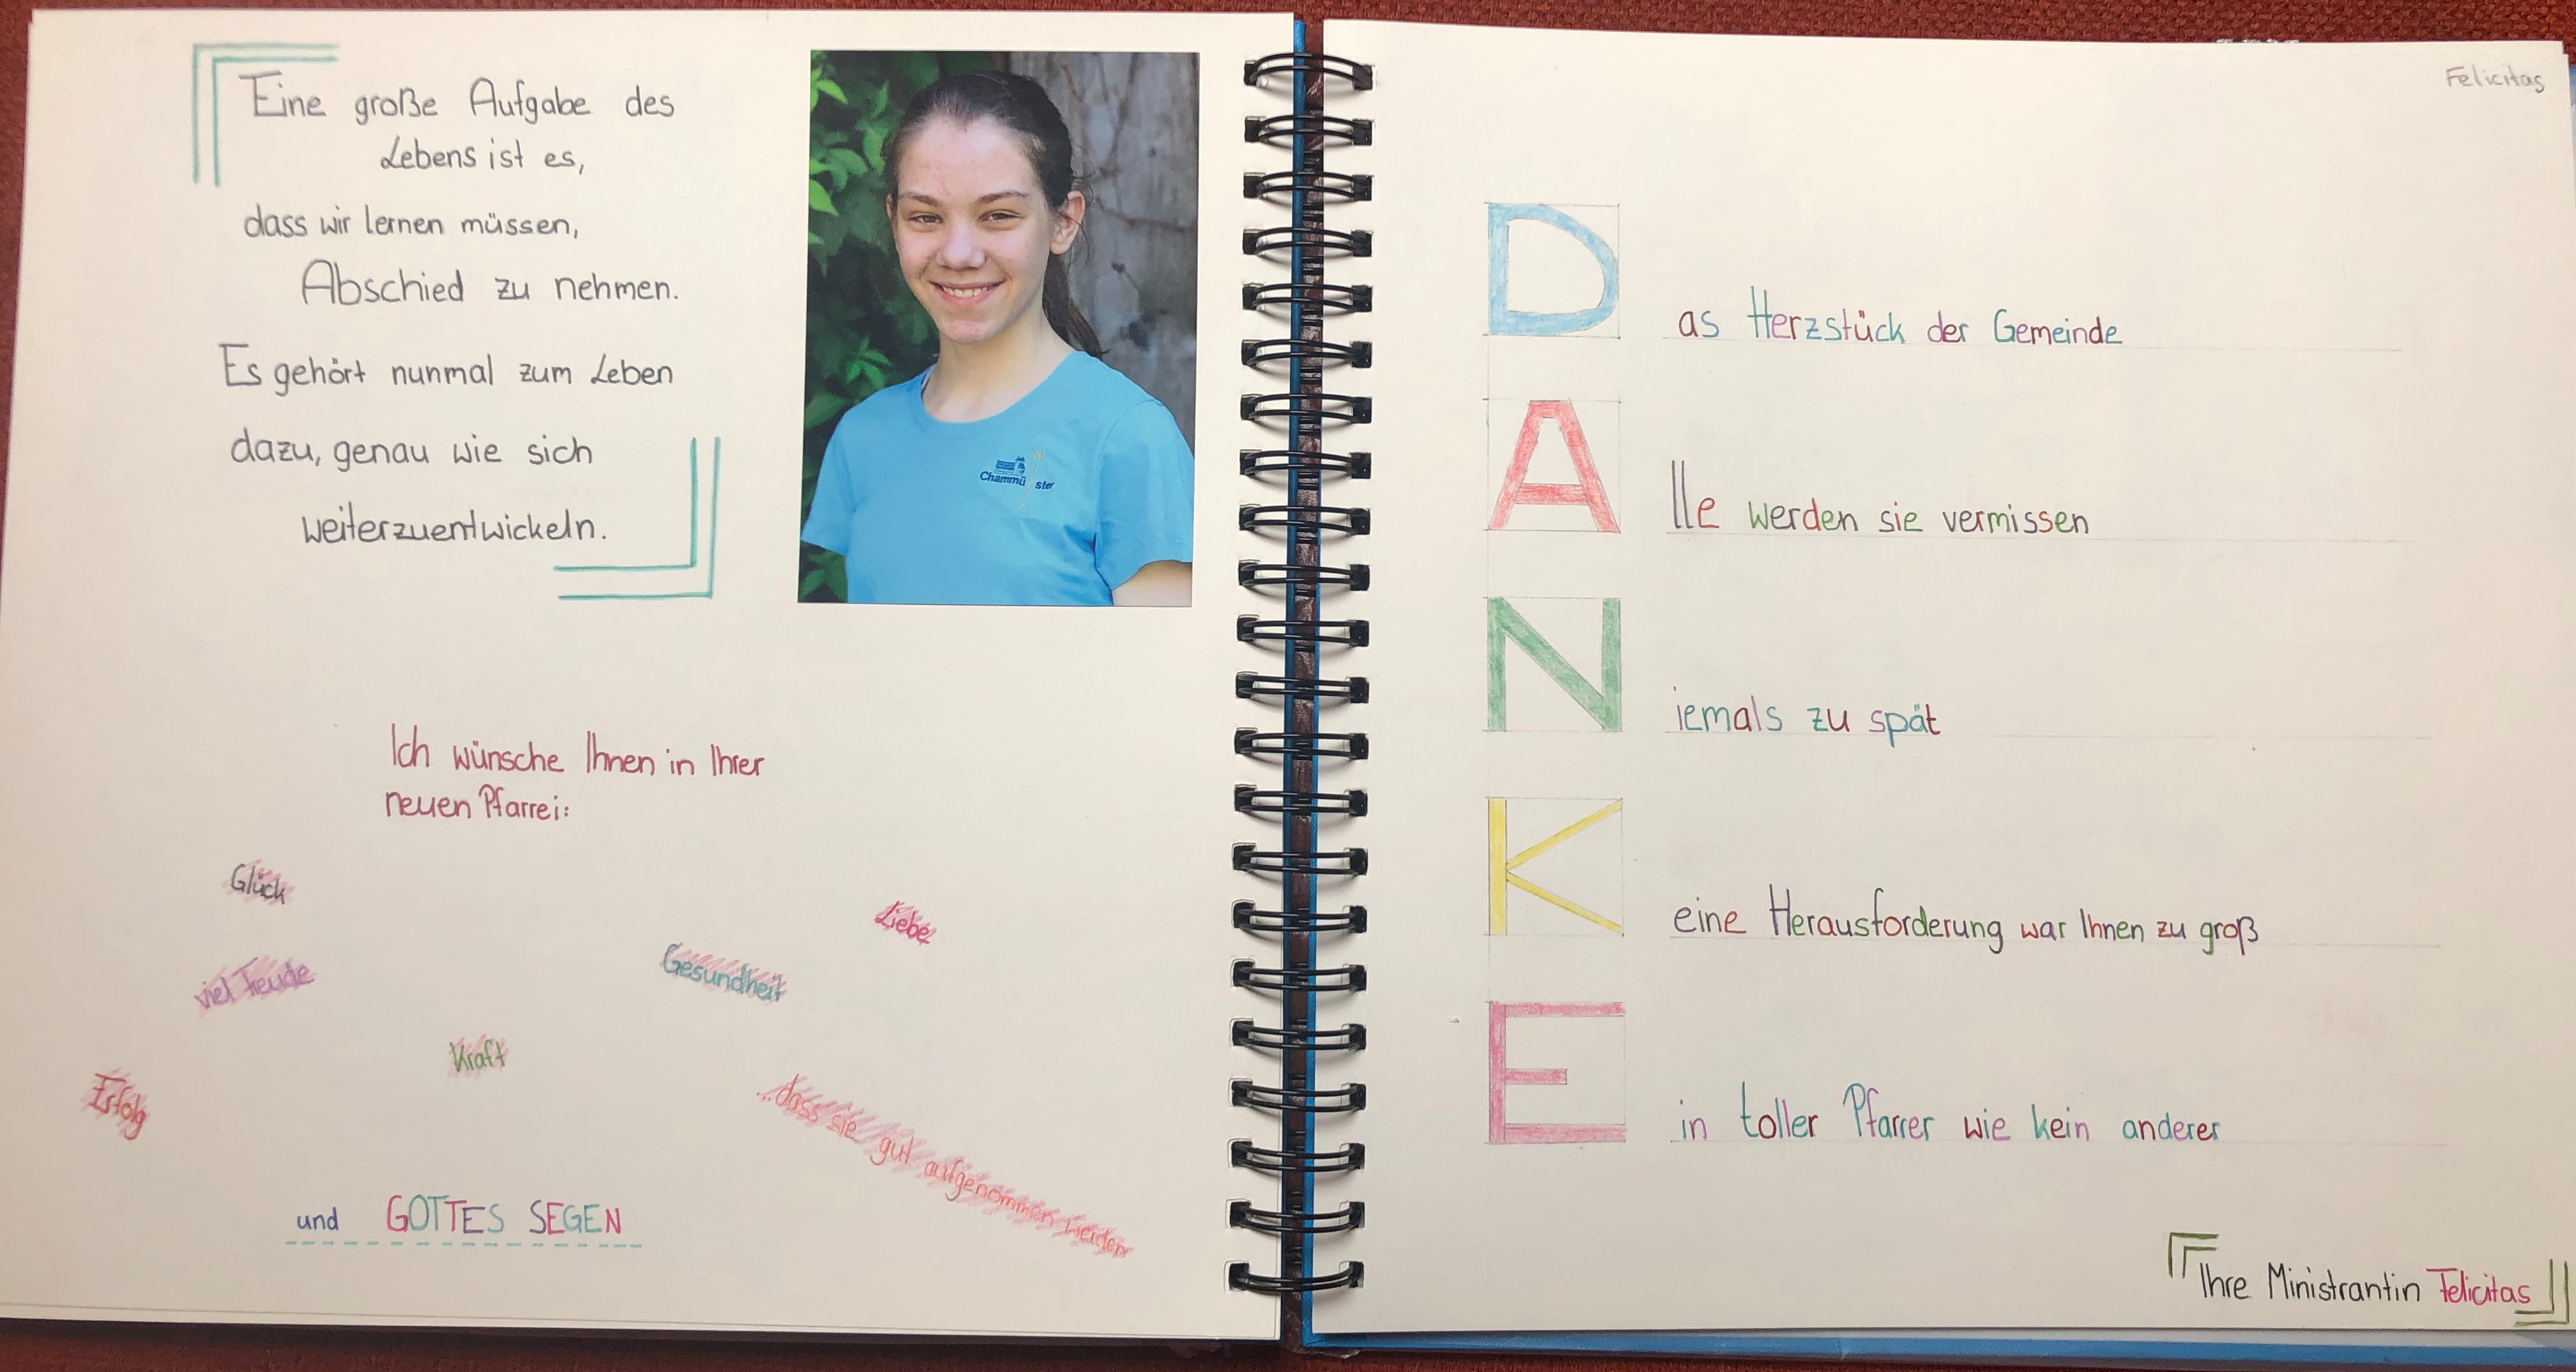 Eine große Aufgabe des
Lebens ist es,
dass wir lernen müssen,
Abschied zu nehmen.
Es gehört nunmal zum Leben
dazu, genau wie sich
weiterzuentwickeln.
Chammü ster
Ich wünsche Ihnen in Ihrer
neuen Pfarrei:
Glück
Liebe
viel Freude
Gesundheit
Kraft
Erfolg
...dass sie gut aufgenommen werden
und GOTTES SEGEN
Felicitas
D as Herzstück der Gemeinde
A lle werden sie vermissen
N iemals zu spät
K eine Herausforderung war Ihnen zu groß
E in toller Pfarrer wie kein anderer
Ihre Ministrantin Felicitas